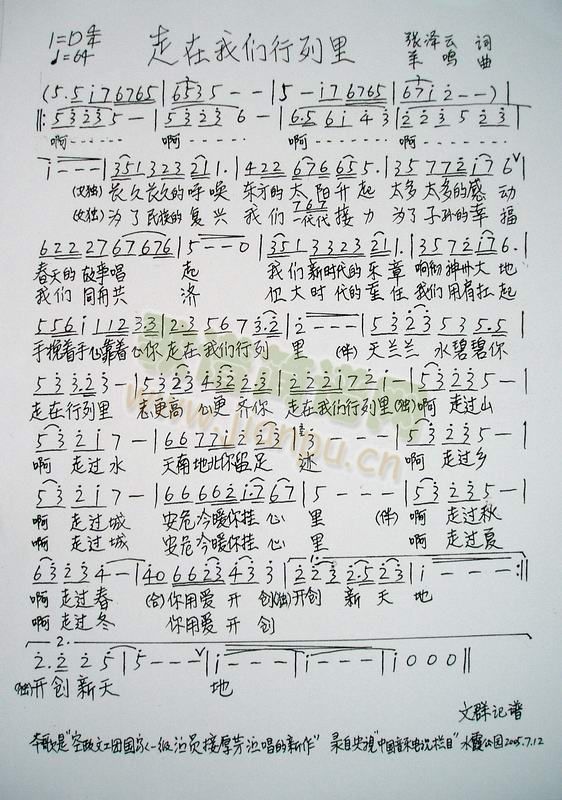 1=D 4/4
♩=64
走在我们行列里
张泽云 词
羊鸣 曲
(5·5i76765|6535--|5-i76765|67i2--)|
‖:53235-|53236-|6·56i43|2235523|
啊------ 啊------ 啊------ 啊------
i---|351323211·|422676655·|3577i76|
(女独)长久长久的呼唤 东方的太阳升起 太多太多的感动
(女独)为了民族的复兴 我们一代代接力 为了子孙的幸福
6222767676|5--0|3513323211·|3572i76·|
春天的故事唱起 我们新时代的乐章 响彻神州大地
我们同舟共济 但大时代的重任 我们用肩扛起
556i1123·3|2·35673·2|2---|5323535·5|
手挽着手心靠着心你走在我们行列里 (伴)天兰兰 水碧碧你
533323-|532343222·3|222i72i-|53235-|
走在行列里 志更高心更齐你 走在我们行列里(独)啊 走过山
532i7-|6677i223|---|53235-|
啊 走过水 天南地北你留足迹 啊 走过乡
532i7-|666662i767|5---|53235-|
啊 走过城 安危冷暖你挂心里 (伴)啊 走过秋
啊 走过城 安危冷暖你挂心里 啊 走过夏
63234-|406623433|2232·523|i---:‖
啊 走过春 (合)你用爱开创(独)开创新天地
啊 走过冬 你用爱开创
2.
2·225|5---|i---|i---|i000‖
(独)开创新天 地
文群记谱
本歌是"空政文工团国家一级演员接厚芳演唱的新作" 录自央视"中国音乐电视栏目" 水霞公园2005.7.12
www.jianpu.cn